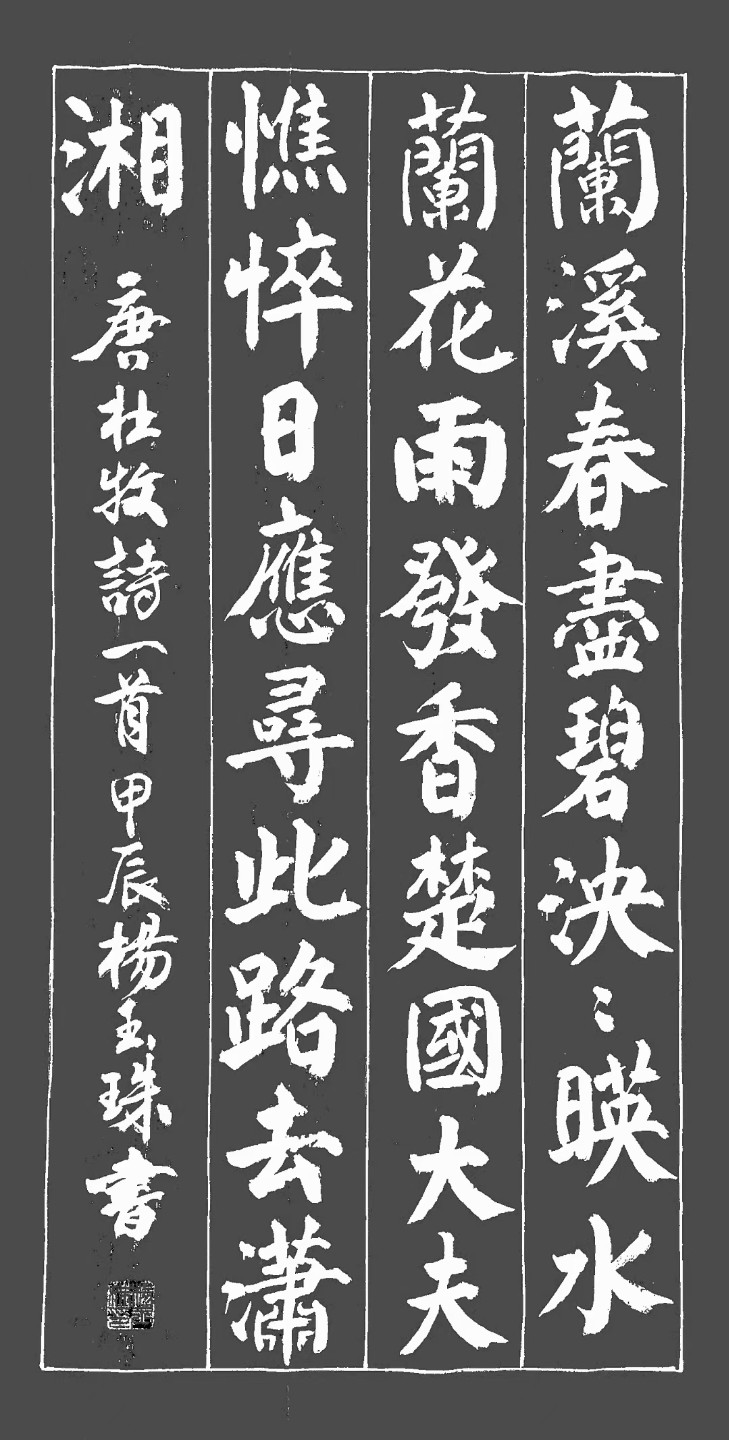 蘭溪春盡碧泱〻暎水
蘭花雨發香楚國大夫
憔悴日應尋此路去瀟
湘 唐杜牧詩一首甲辰楊玉珠書